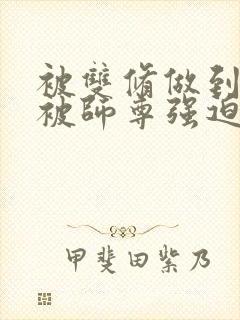 被雙脩做到
被師尊强迫
甲斐田紫乃